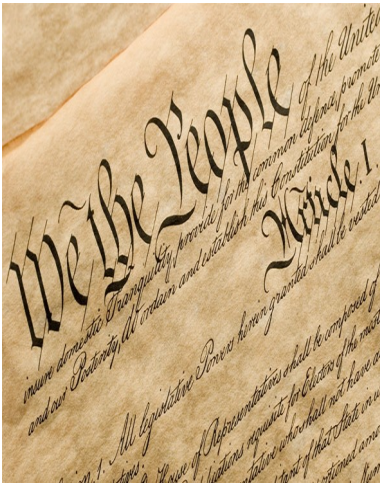 We the People of the United
insure domestic Tranquility, provide for the common defence, promote
and our Posterity, do ordain and establish this Constitution for the Un
Article I.
1. All legislative Powers herein granted shall be vested
House of Representatives shall be composed of
requisite for Electors of the most
who shall not have a
of that State in w